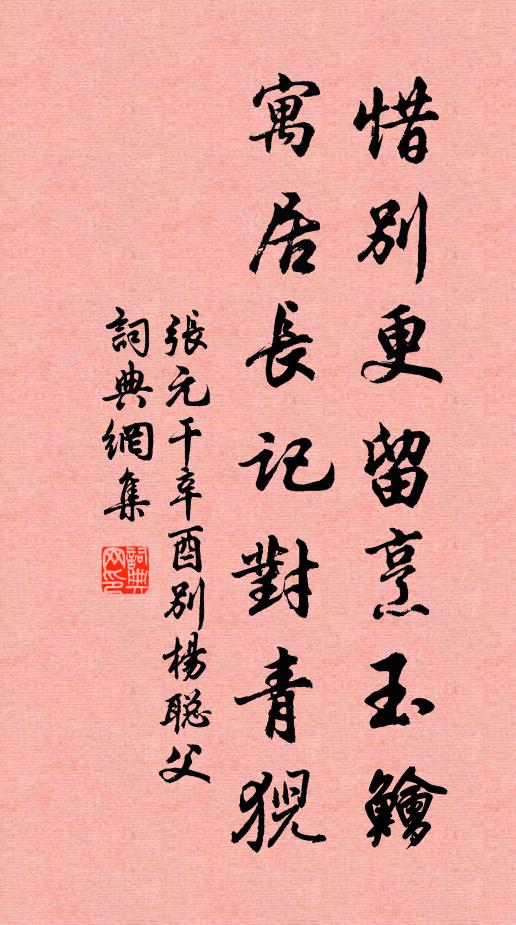 惜別更留烹玉鱠
寓居長記對青猊
張元干辛酉別楊聡父
詞典網集
詞典网印